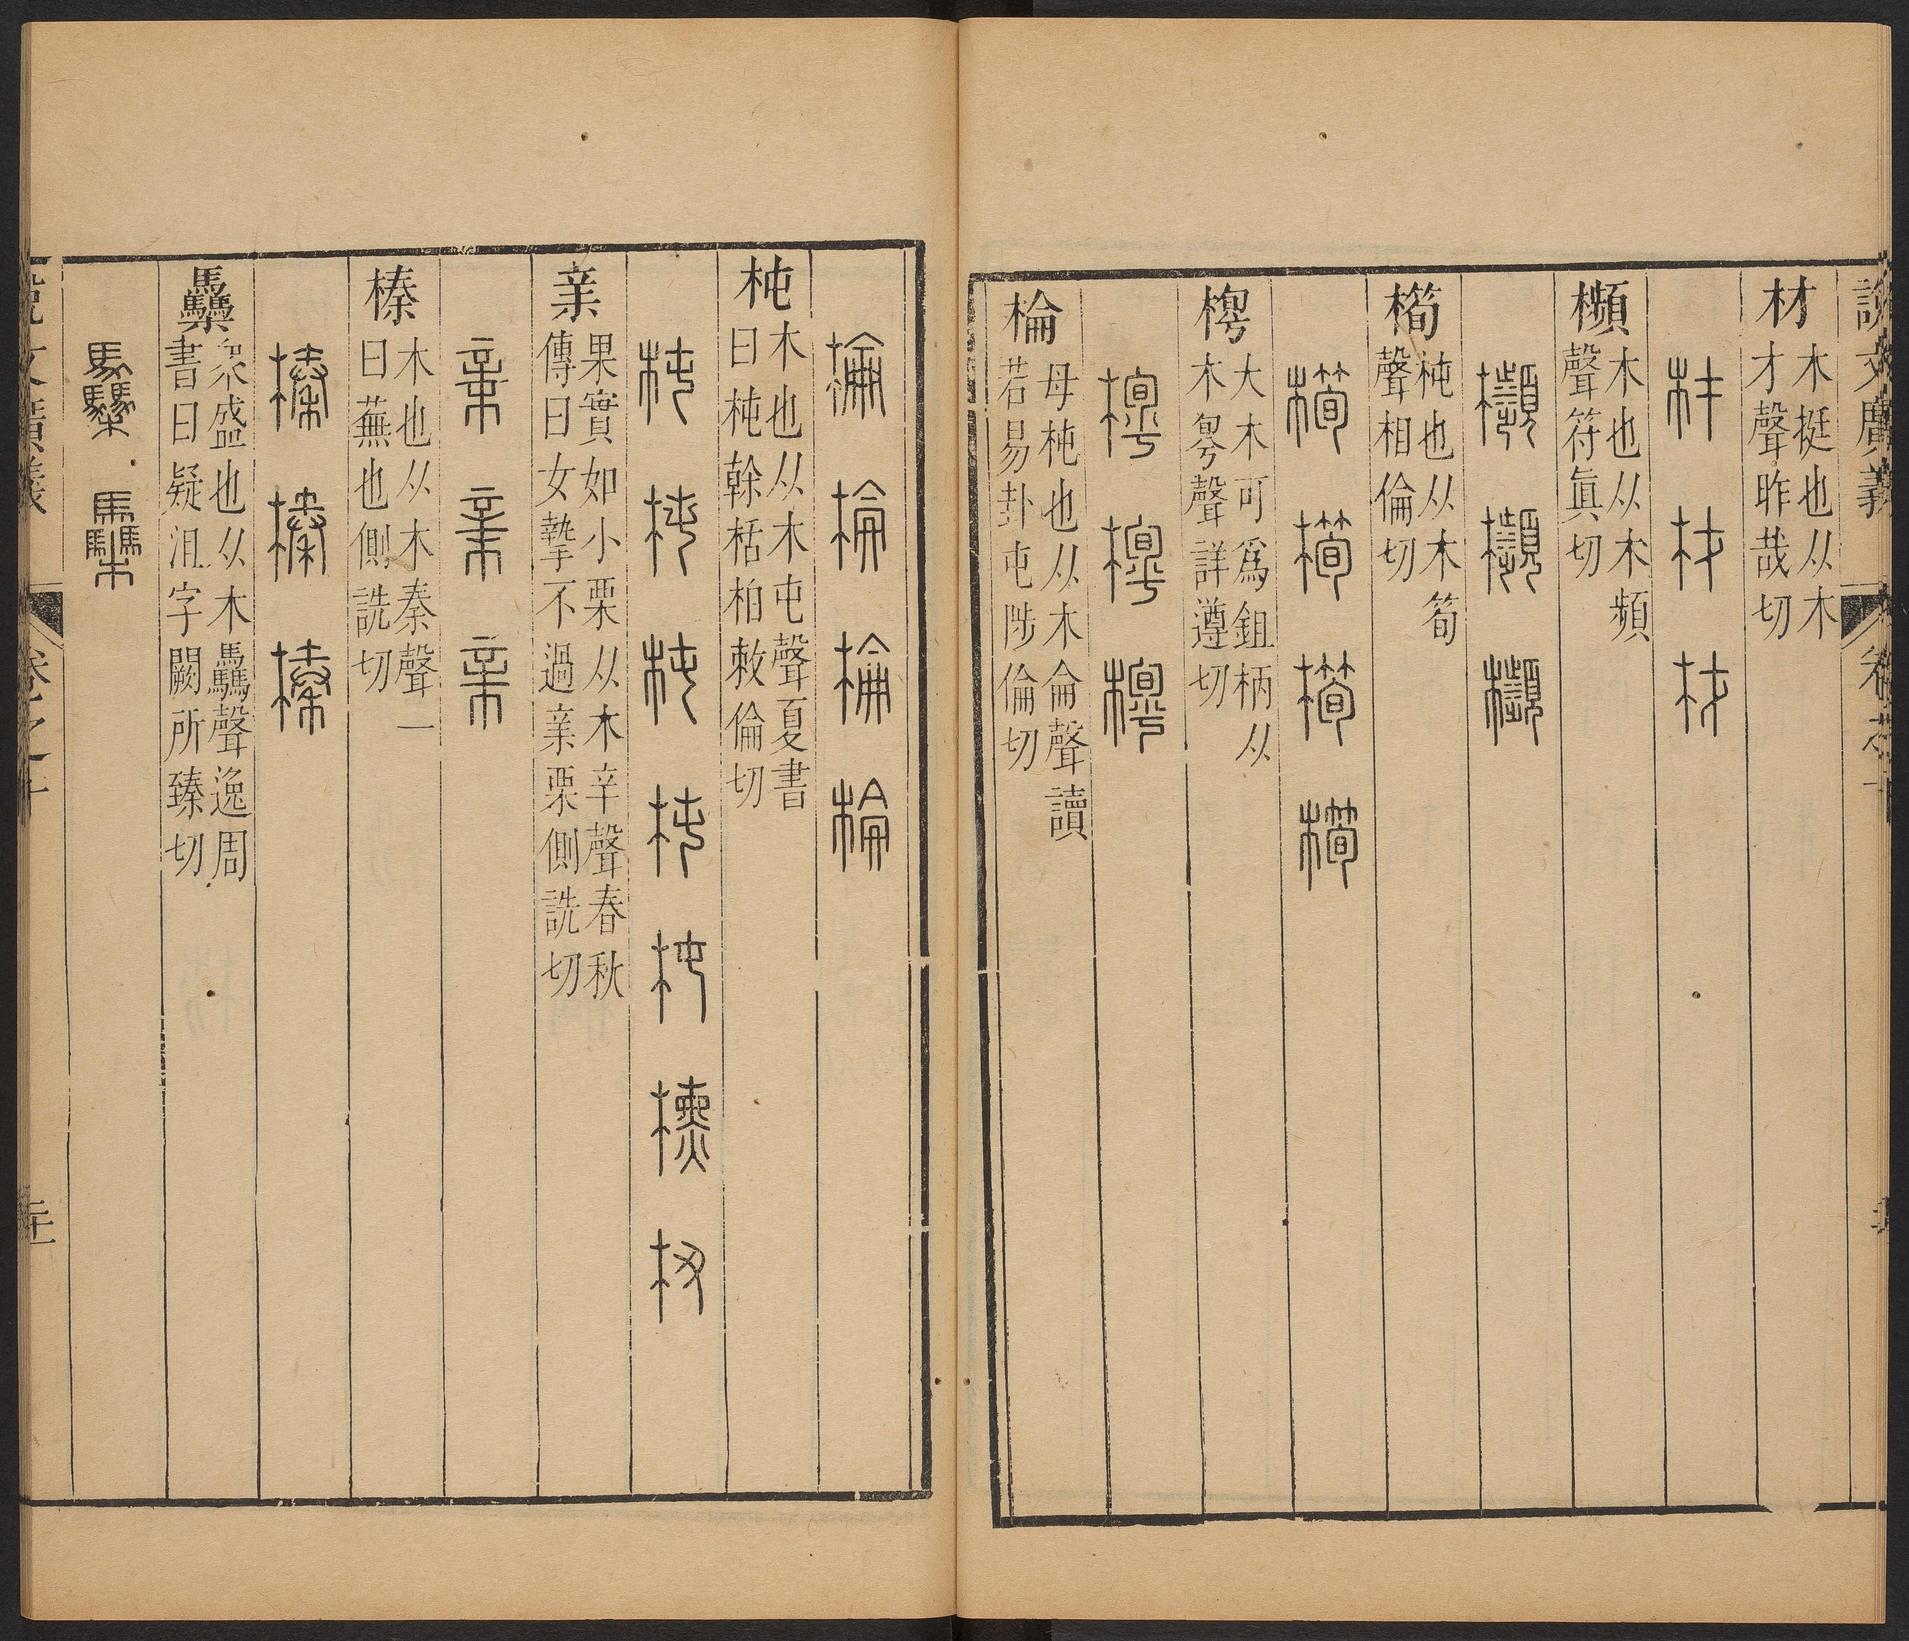 說文廣義 卷之十
材 木挺也从木
才聲昨哉切
材 材 材
櫇 木也从木頻
聲符眞切
櫇 櫇 櫇
橁 杶也从木筍
聲相倫切
橁 橁 橁 橁
梬 大木可爲鉏柄从
木粤聲詳遵切
棆 母杶也从木侖聲讀
若易卦屯陟倫切
棆 棆 棆 棆
杶 木也从木屯聲夏書
曰杶榦栝柏敕倫切
杶 杶 杶 杶 杶
亲 果實如小栗从木辛聲春秋
傳曰女摯不過亲栗側詵切
亲 亲 亲
榛 木也从木秦聲一
曰蕪也側詵切
榛 榛 榛
衆盛也从木驫聲逸周
書曰疑沮字闕所臻切
說文廣義 卷之十